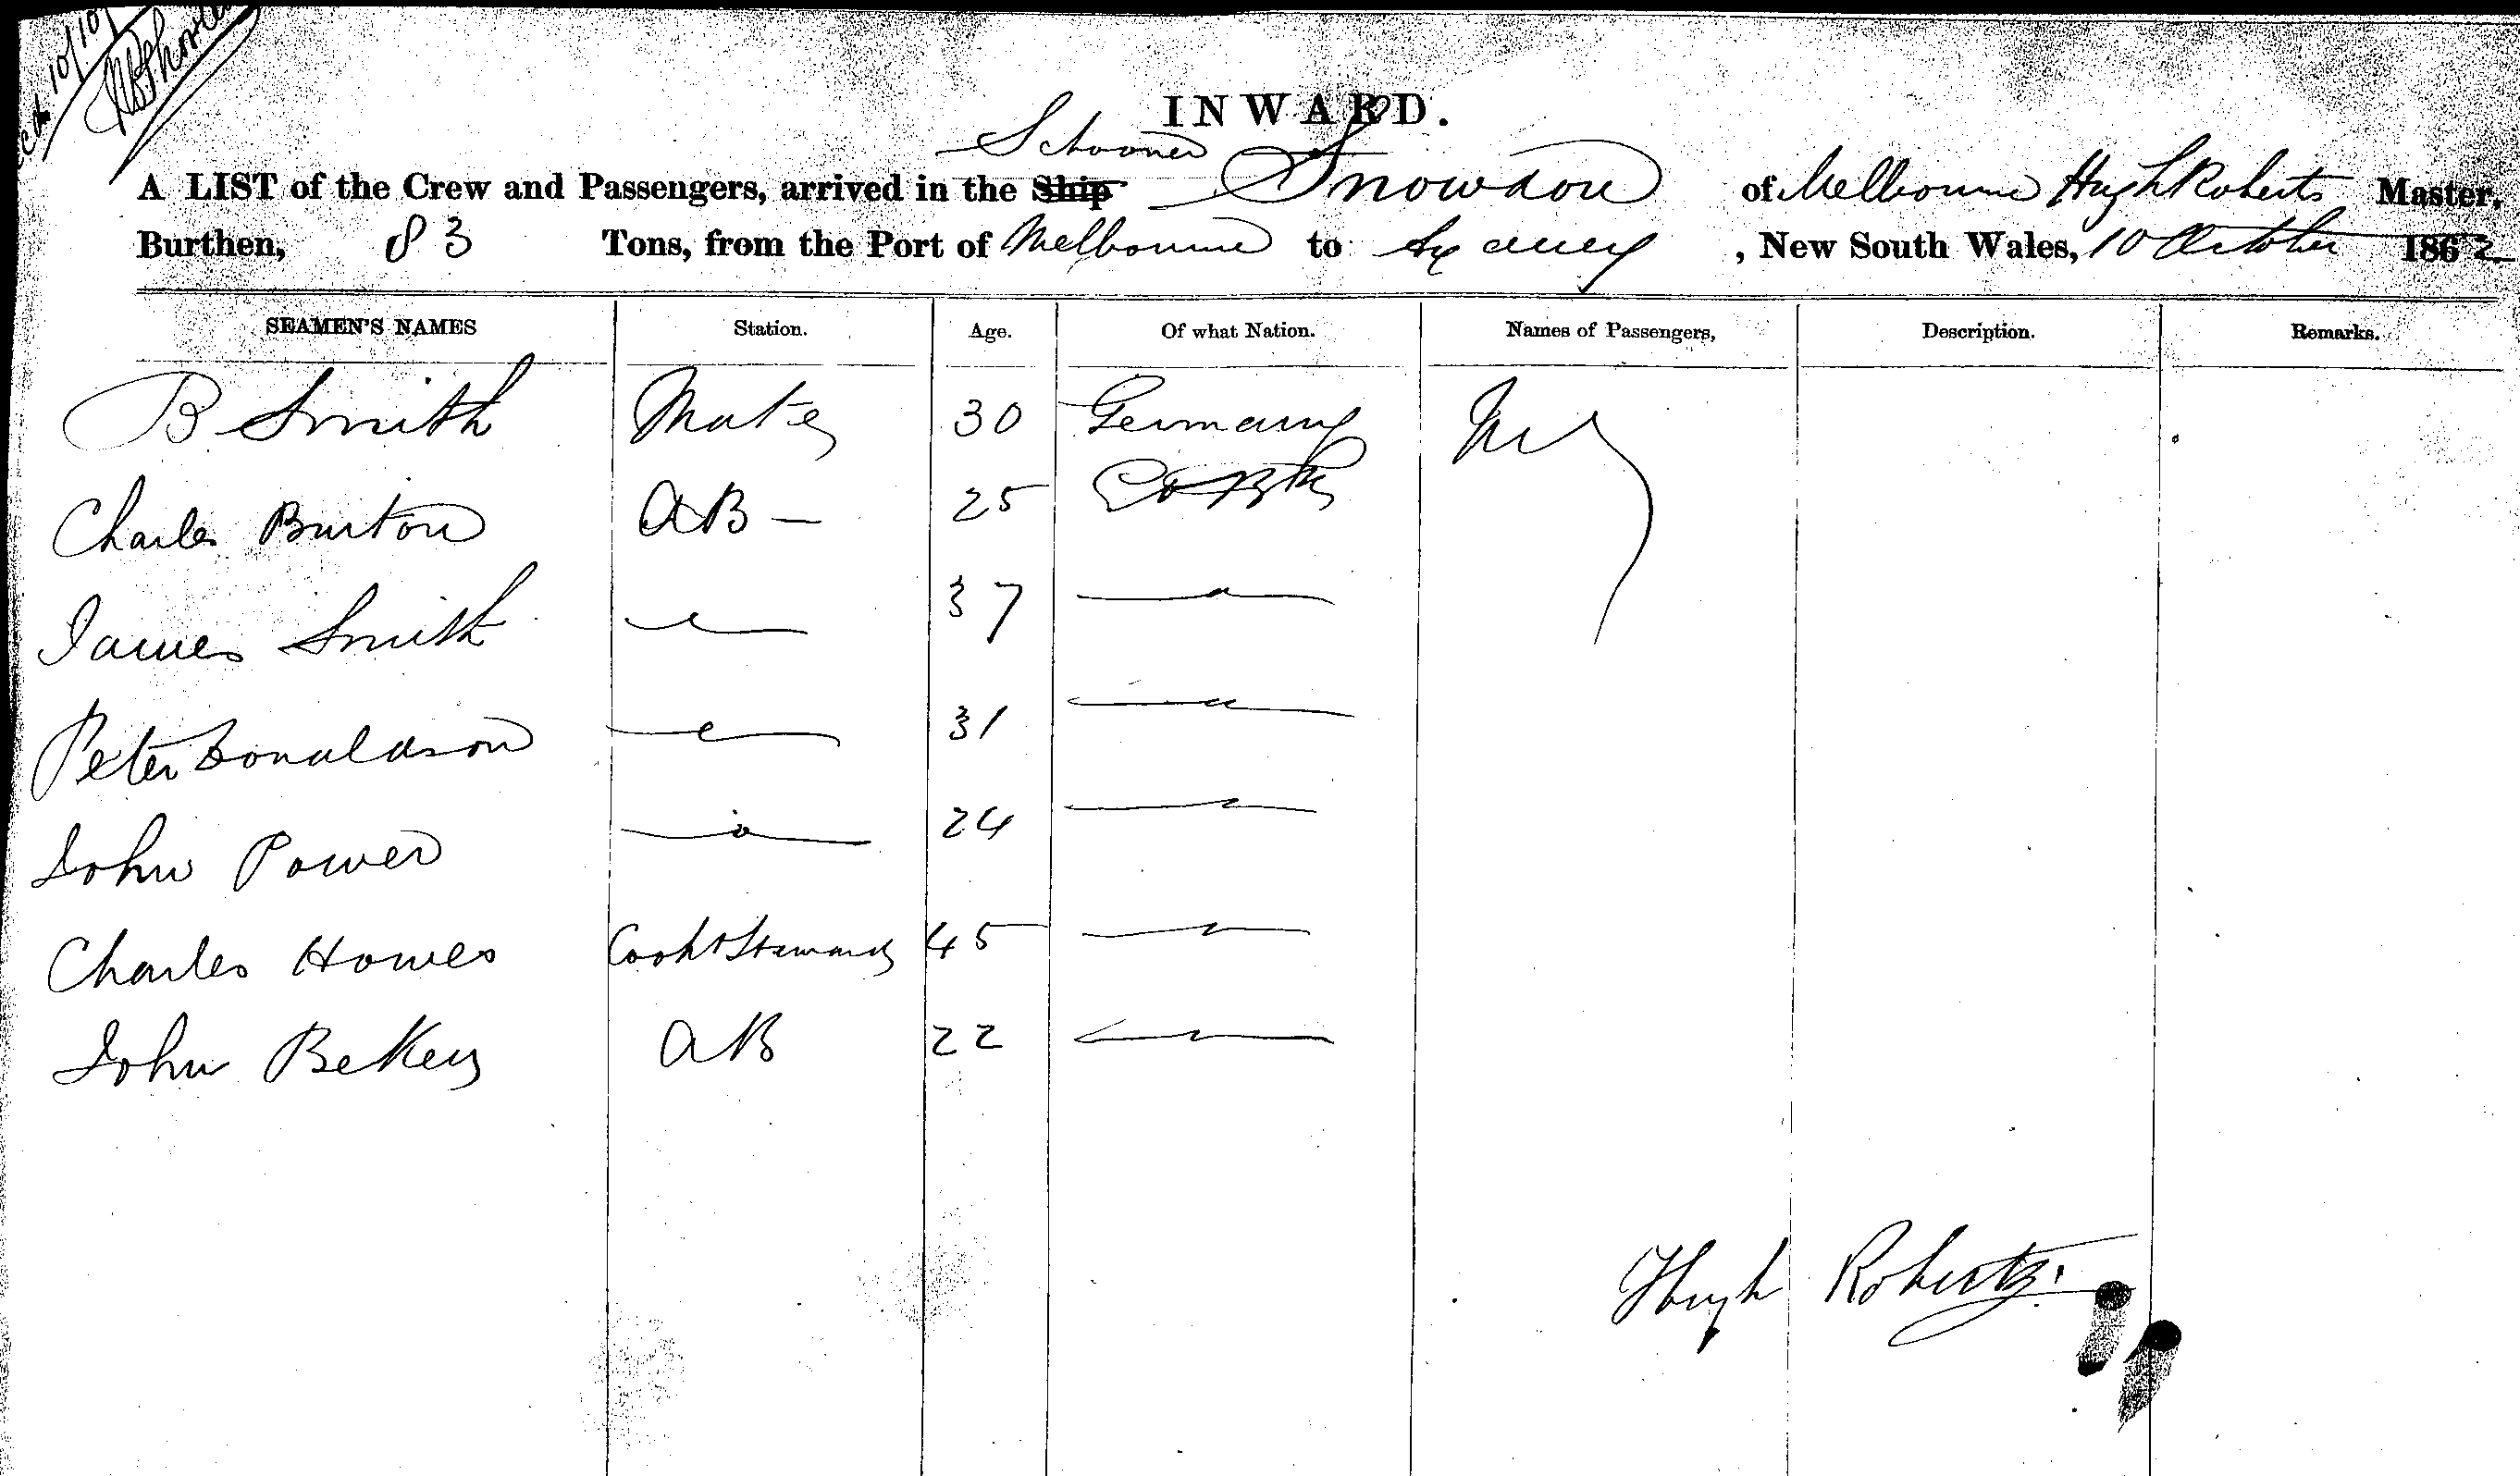 10/10
INWARD.
Schooner
A LIST of the Crew and Passengers, arrived in the Ship Snowdon of Melbourne Hugh Roberts Master,
Burthen, 83 Tons, from the Port of Melbourne to Sydney, New South Wales, 10 October 1862
SEAMEN'S NAMES Station. Age. Of what Nation. Names of Passengers, Description. Remarks.
B Smith Mate 30 Germany Nil
Charles Burton AB — 25
James Smith 37
Peter Donaldson 31
John Power 24
Charles Howes Cook & Steward 45
John Bekey AB 22
Hugh Roberts